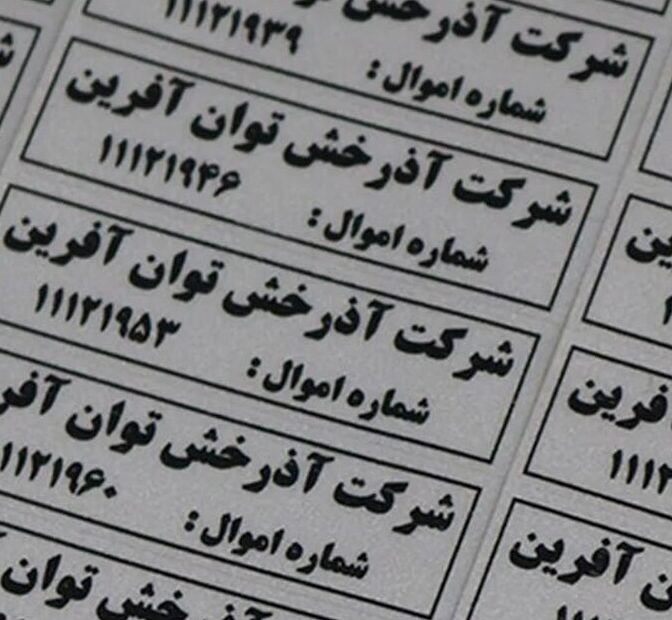 شرکت آذرخش
شماره اموال : ۱۱۱۲۱۹۳۹
شرکت آذرخش توان آفرین
شماره اموال : ۱۱۱۲۱۹۴۶
شرکت آذرخش توان آفرین
شماره اموال : ۱۱۱۲۱۹۵۳
شرکت آذرخش توان
شماره اموال : ۱۱۱۲۱۹۶۰
توان
آفرین
آفرین